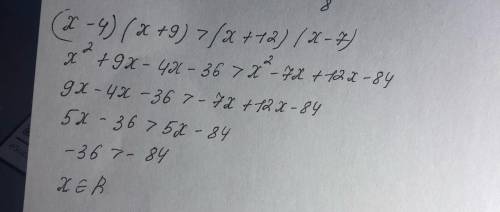 8
(x-4)(x+9)>(x+12)(x-7)
x²+9x-4x-36>x²-7x+12x-84
9x-4x-36>-7x+12x-84
5x-36>5x-84
-36>-84
x∈R